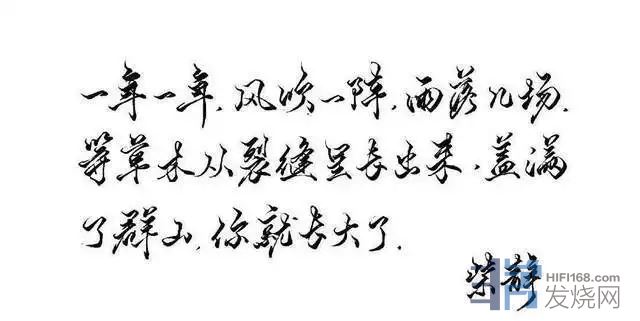 一年一年，风吹一阵，雨落几场，
等草木从裂缝里长出来，盖满
了群山，你就长大了。
柴静
HIFI168.com
发烧网